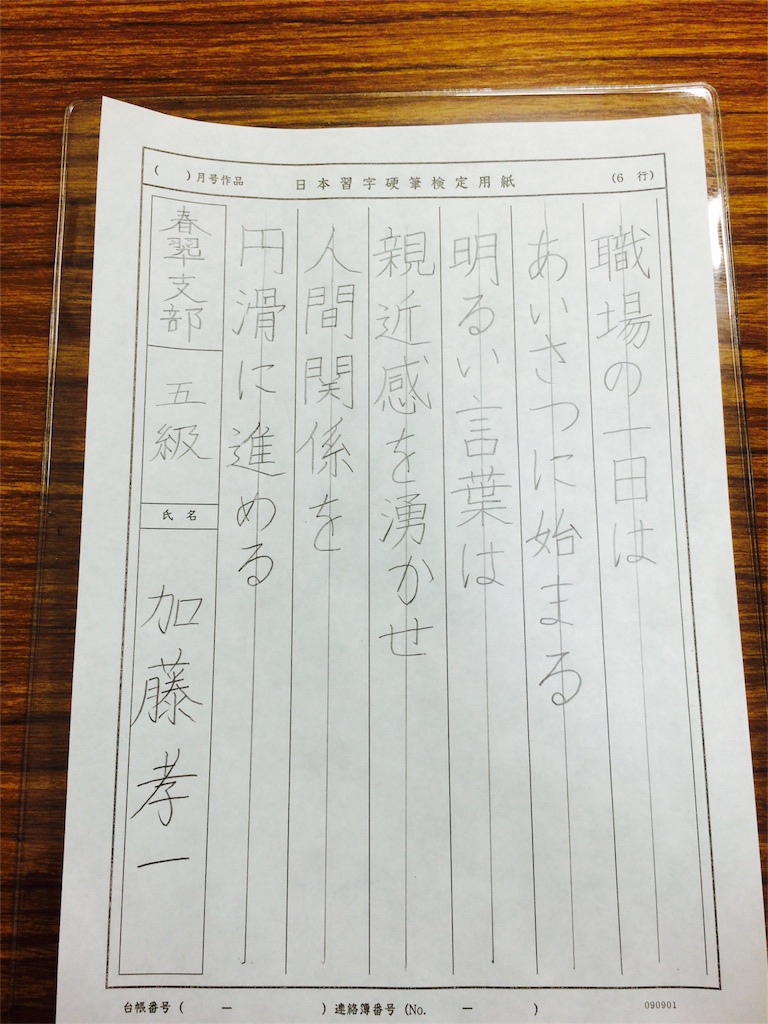 ( )月号作品 日本習字硬筆検定用紙 (6 行)
職場の一日は
あいさつに始まる
明るい言葉は
親近感を湧かせ
人間関係を
円滑に進める
春翠支部
五級
氏名
加藤孝一
台帳番号 ( ー ) 連絡簿番号 (No. ー )
090901